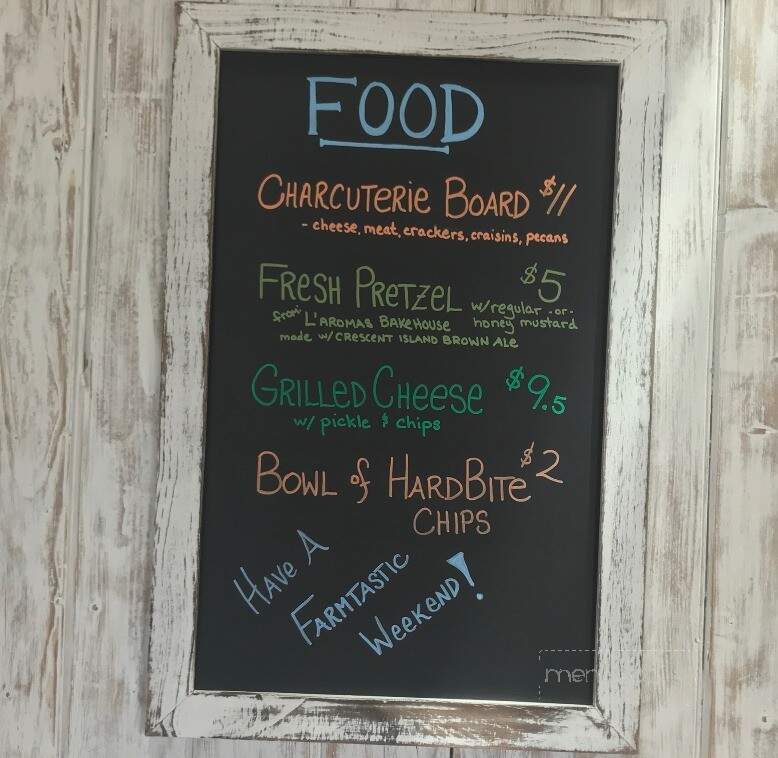 FOOD
CHARCUTERIE BOARD $11
- cheese, meat, crackers, craisins, pecans
FRESH PRETZEL $5
w/regular -or-
from L'AROMAS BAKEHOUSE honey mustard
made w/ CRESCENT ISLAND BROWN ALE
GRILLED CHEESE $9.5
w/ pickle & chips
BOWL of HARDBITE $2
CHIPS
HAVE A
FARMTASTIC
WEEKEND!